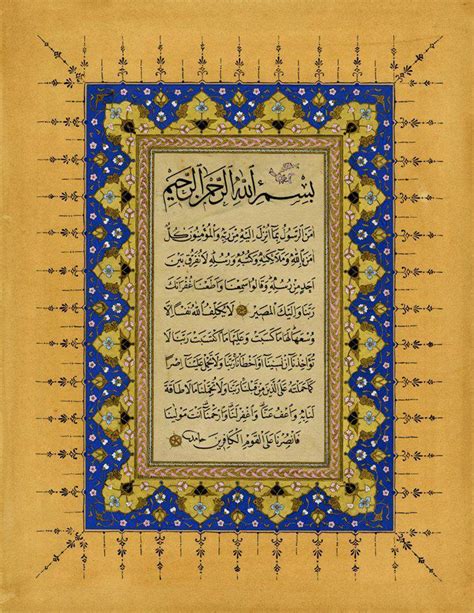 بِسْمِ اللهِ الرَّحْمٰنِ الرَّحِيمِ
اٰمَنَ الرَّسُولُ بِمَا اُنْزِلَ اِلَيْهِ مِنْ رَبِّهِ وَالْمُؤْمِنُونَ كُلٌّ
اٰمَنَ بِاللهِ وَمَلَائِكَتِهِ وَكُتُبِهِ وَرُسُلِهِ لَا نُفَرِّقُ بَيْنَ
اَحَدٍ مِنْ رُسُلِهِ وَقَالُوا سَمِعْنَا وَاَطَعْنَا غُفْرَانَكَ
رَبَّنَا وَاِلَيْكَ الْمَصِيرُ لَا يُكَلِّفُ اللهُ نَفْسًا اِلَّا
وُسْعَهَا لَهَا مَا كَسَبَتْ وَعَلَيْهَا مَا اكْتَسَبَتْ رَبَّنَا لَا
تُؤَاخِذْنَا اِنْ نَسِينَا اَوْ اَخْطَأْنَا رَبَّنَا وَلَا تَحْمِلْ عَلَيْنَا اِصْرًا
كَمَا حَمَلْتَهُ عَلَى الَّذِينَ مِنْ قَبْلِنَا رَبَّنَا وَلَا تُحَمِّلْنَا مَا لَا طَاقَةَ
لَنَا بِهِ وَاعْفُ عَنَّا وَاغْفِرْ لَنَا وَارْحَمْنَا اَنْتَ مَوْلٰينَا
فَانْصُرْنَا عَلَى الْقَوْمِ الْكَافِرِينَ حامد